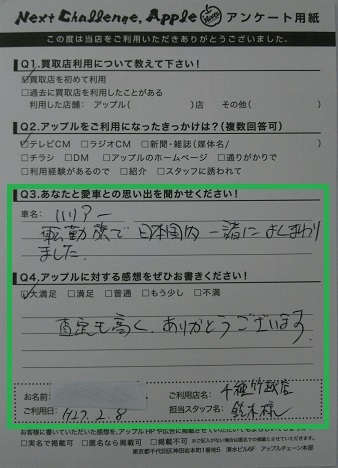 Next Challenge, Apple アンケート用紙
この度は当店をご利用いただきありがとうございました。
Q1.買取店利用について教えて下さい!
☑買取を初めて利用
□過去に買取店を利用したことがある
利用した店舗: アップル( )店 その他( )
Q2.アップルをご利用になったきっかけは?(複数回答可)
☑テレビCM □ラジオCM □新聞・雑誌(媒体名/ )
□チラシ □DM □アップルのホームページ □通りがかりで
□利用経験があるので □紹介 □スタッフに誘われて
Q3.あなたと愛車との思い出を聞かせください!
車名:
転勤族で日本国内一諸によくまわり
ました.
Q4.アップルに対する感想をぜひお書きください!
☑大満足 □満足 □普通 □もう少し □不満
査定も高く、ありがとうございます.
お名前
ご利用店名: 千種竹越店
ご利用日: H27.2.8
担当スタッフ名: 鈴木様
お客様に書いていただいた感想を、アップルHPや広告に掲載させていただきますのでよろしくお願いします。
□実名で掲載可 □匿名なら掲載可 □掲載不可
東京都千代田区神田紺屋町 清水ビル6F アップルチェーン本部